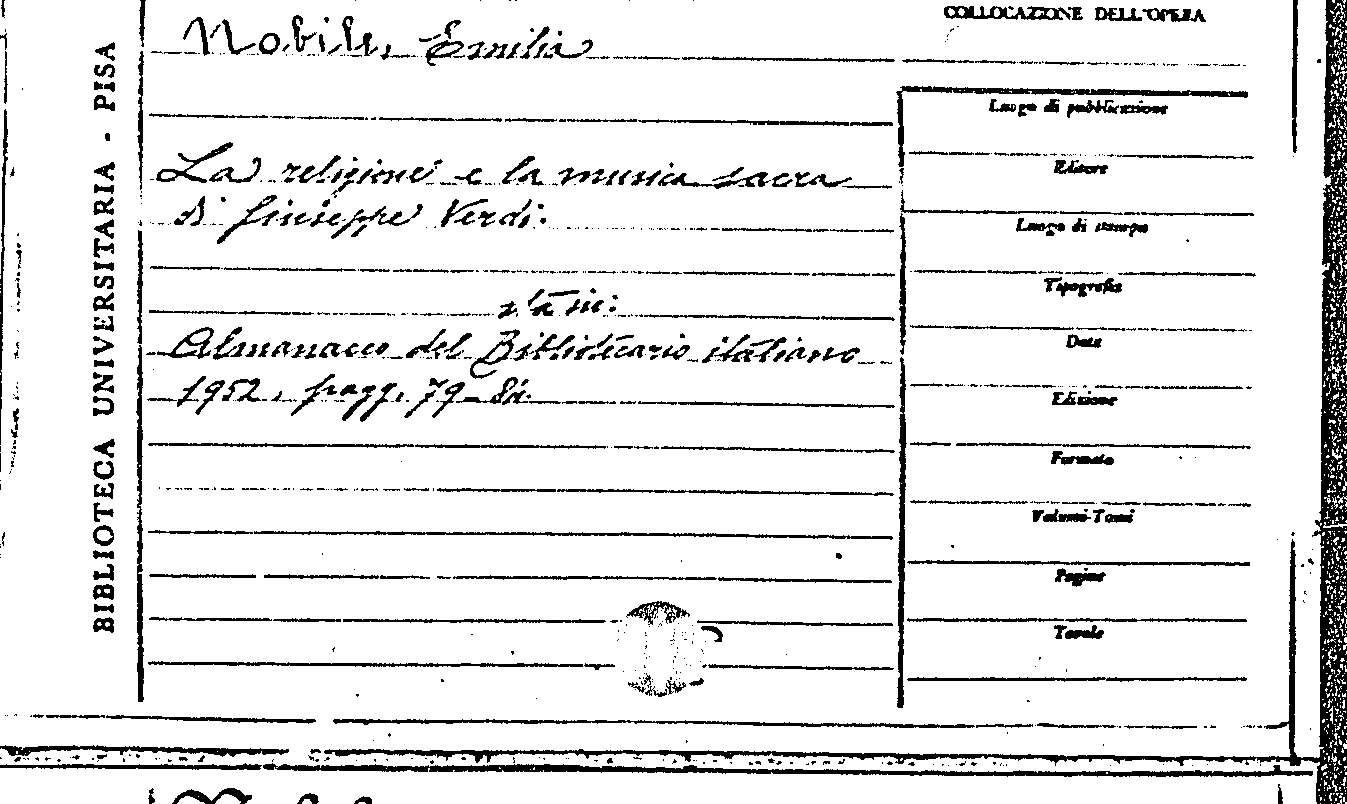 COLLOCAZIONE DELL'OPERA
Nobile, Emilia
BIBLIOTECA UNIVERSITARIA - PISA
La religione e la musica sacra
di Giuseppe Verdi.
sta in:
Almanacco del Bibliotecario italiano
1952, pagg. 79-
Luogo di pubblicazione
Editore
Luogo di stampa
Tipografia
Data
Edizione
Formato
Volumi-Tomi
Pagine
Tavole